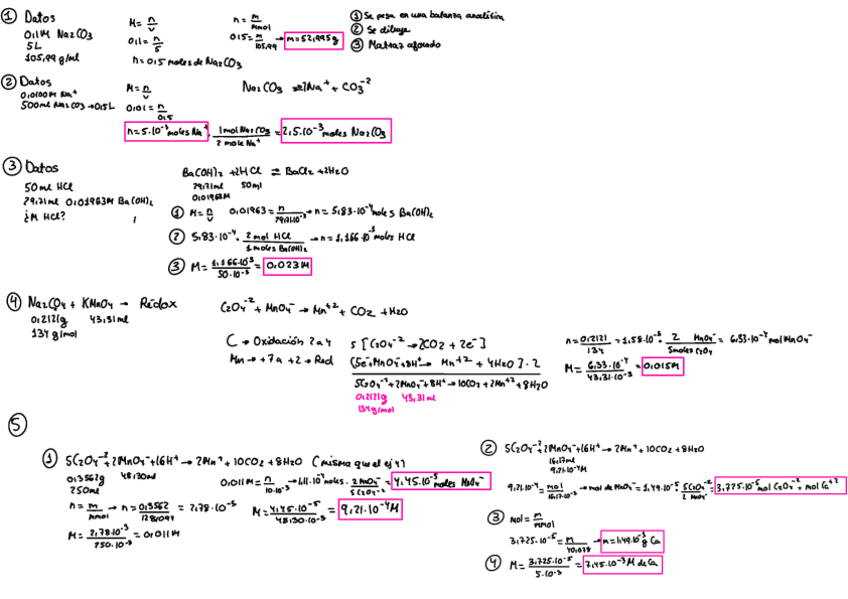 ① Datos
0,1M Na2CO3
5L
105,99 g/ml
M = n/v
0,1 = n/5
n = 0,5 moles de Na2CO3
n = m/mmol
0,5 = m/105,99 → m = 52,995g
① Se pesa en una balanza analítica
② Se diluye
③ Matraz aforado
② Datos
0,0100M Na+
500ml Na2CO3 → 0,5L
M = n/v
0,01 = n/0,5
Na2CO3 ⇌ 2Na+ + CO3-2
n = 5·10-3 moles Na+ · 1mol Na2CO3/2 mole Na+ = 2,5·10-3 moles Na2CO3
③ Datos
50ml HCl
29,71ml 0,01963M Ba(OH)2
¿M HCl?
Ba(OH)2 + 2HCl ⇌ BaCl2 + 2H2O
29,71ml 50ml
0,01963M
① M = n/v 0,01963 = n/29,71·10-3 → n = 5,83·10-4 moles Ba(OH)2
② 5,83·10-4 · 2 mol HCl/1 moles Ba(OH)2 → n = 1,166·10-3 moles HCl
③ M = 1,166·10-3/50·10-3 = 0,023M
④ Na2C2O4 + KMnO4 → Rédox
0,2121g 43,31ml
134 g/mol
C2O4-2 + MnO4- → Mn+2 + CO2 + H2O
C → Oxidación 3 a 4
Mn → +7 a +2 → Red
5 [C2O4-2 → 2CO2 + 2e-]
(5e- + MnO4- + 8H+ → Mn+2 + 4H2O) · 2
5C2O4-2 + 2MnO4- + 8H+ → 10CO2 + 2Mn+2 + 8H2O
0,2121g 43,31ml
134g/mol
n = 0,2121/134 = 1,58·10-3 · 2 MnO4-/5moles C2O4 = 6,33·10-4 mol MnO4-
M = 6,33·10-4/43,31·10-3 = 0,015M
⑤
① 5C2O4-2 + 2MnO4- + 16H+ → 2Mn+ + 10CO2 + 8H2O (misma que el ej 4)
0,3562g 48,30ml
250ml
n = m/mmol → n = 0,3562/128,097 = 2,78·10-3
M = 2,78·10-3/250·10-3 = 0,011M
0,011M = n/10·10-3 → 1,11·10-4 moles · 2 MnO4-/5 C2O4-2 = 4,45·10-5 moles MnO4-
M = 4,45·10-5/48,30·10-3 = 9,21·10-4M
② 5C2O4-2 + 2MnO4- + 16H+ → 2Mn+ + 10CO2 + 8H2O
16,17ml
9,21·10-4M
9,21·10-4 = mol/16,17·10-3 → mol de MnO4- = 1,49·10-5 · 5C2O4-2/2 MnO4- = 3,725·10-5 mol C2O4-2 = mol Ca+2
③ mol = m/mmol
3,725·10-5 = m/40,078 → m = 1,49·10-3 g Ca
④ M = 3,725·10-5/5·10-3 = 7,45·10-3 M de Ca